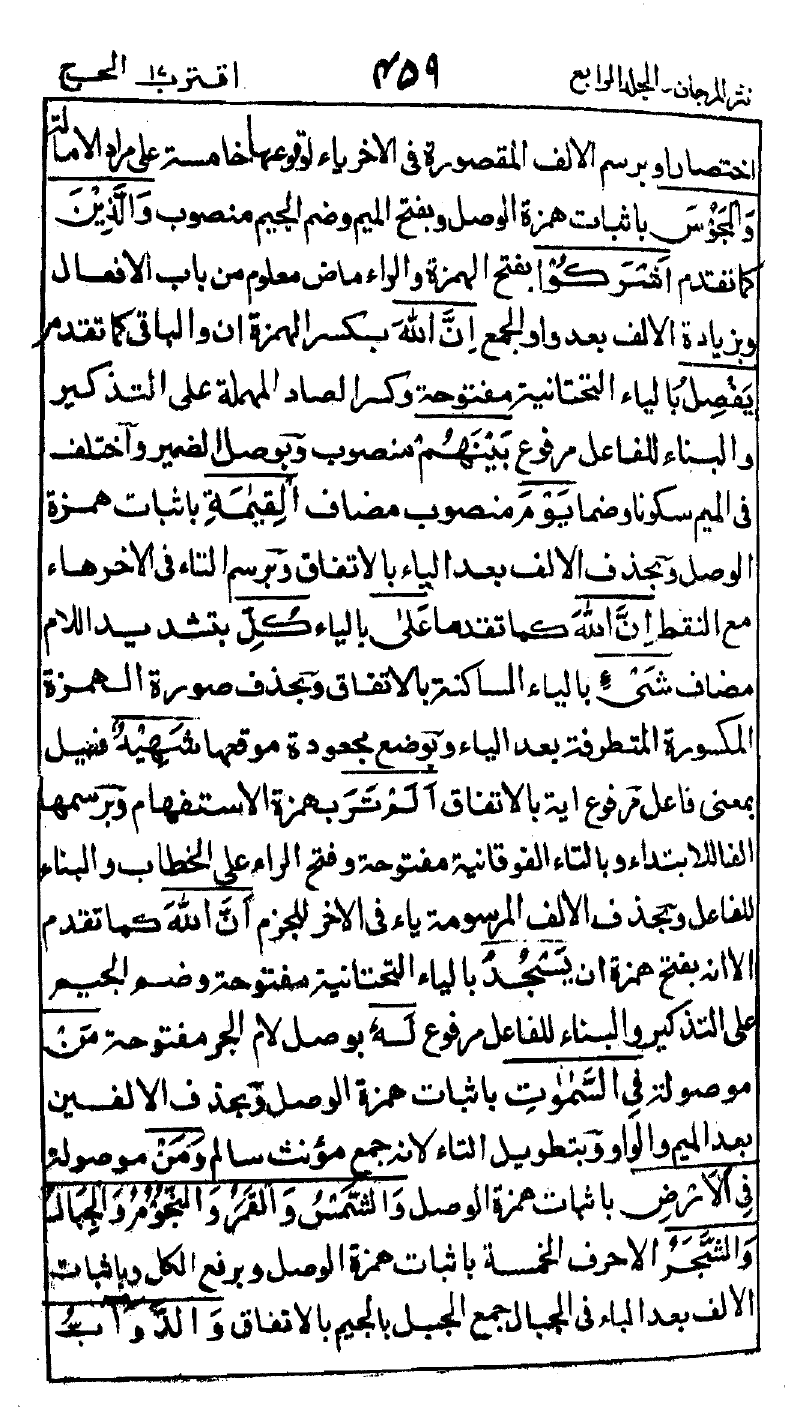 نثر المرجان - الجلد الرابع ٤٥٩ اقترب ١٧ الحج
اختصارا وبرسم الالف المقصورة فى الاخر ياء لوقوعها خامسة على مراد الامالة
وَالْمَجُوْسَ باثبات همزة الوصل وبفتح الميم وضم الجيم منصوب وَالَّذِيْنَ
كما تقدم اَشْرَكُوْا بفتح الهمزة والراء ماض معلوم من باب الافعال
وبزيادة الالف بعد واو الجمع اِنَّ اللّٰهَ بكسر الهمزة ان والباقى كما تقدم
يَفْصِلُ بالياء التحتانية مفتوحة وكسر الصاد المهملة على التذكير
والبناء للفاعل مرفوع بَيْنَهُمْ منصوب وبوصل الضمير واختلف
فى الميم سكونا وضما يَوْمَ منصوب مضاف الْقِيٰمَةِ باثبات همزة
الوصل وبحذف الالف بعد الياء بالاتفاق وبرسم التاء فى الاخر هاء
مع النقط اِنَّ اللّٰهَ كما تقدما عَلٰى بالياء كُلِّ بتشديد اللام
مضاف شَىْءٍ بالياء الساكنة بالاتفاق وبحذف صورة الهمزة
المكسورة المتطرفة بعد الياء وبوضع مجعودة موقعها شَهِيْدٌ فعيل
بمعنى فاعل مرفوع اية بالاتفاق اَلَمْ تَرَ بهمزة الاستفهام وبرسمها
الفا للابتداء وبالتاء الفوقانية مفتوحة وفتح الراء على الخطاب والبناء
للفاعل وبحذف الالف المرسومة ياء فى الاخر للجزم اَنَّ اللّٰهَ كما تقدم
الا انه بفتح همزة ان يَسْجُدُ بالياء التحتانية مفتوحة وضم الجيم
على التذكير والبناء للفاعل مرفوع لَهٗ بوصل لام الجر مفتوحة مَنْ
موصولة فِى السَّمٰوٰتِ باثبات همزة الوصل وبحذف الالفين
بعد الميم والواو وبتطويل التاء لانه جمع مؤنث سالم وَمَنْ موصولة
فِى الْاَرْضِ باثبات همزة الوصل وَالشَّمْسُ وَالْقَمَرُ وَالنُّجُوْمُ وَالْجِبَالُ
وَالشَّجَرُ الاحرف الخمسة باثبات همزة الوصل وبرفع الكل وباثبات
الالف بعد الباء فى الجبال جمع الجبل بالجيم بالاتفاق وَالدَّوَآبُّ